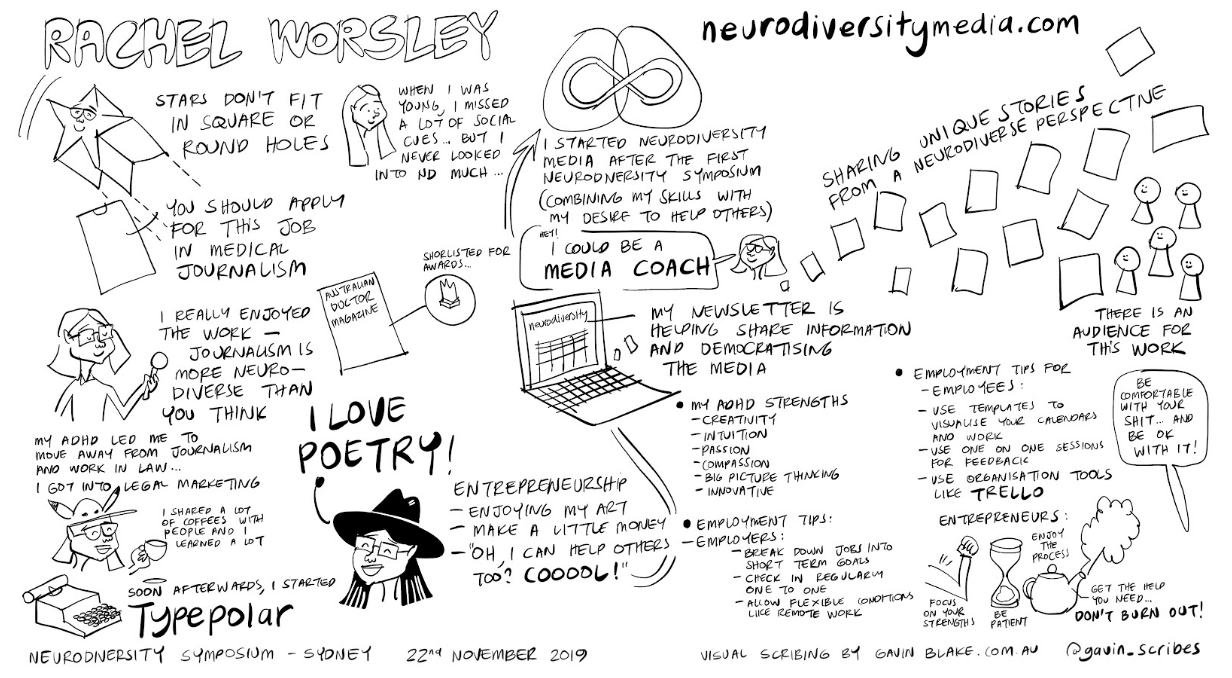 RACHEL WORSLEY
neurodiversitymedia.com
STARS DON'T FIT
IN SQUARE OR
ROUND HOLES
WHEN I WAS
YOUNG, I MISSED
A LOT OF SOCIAL
CUES... BUT I
NEVER LOOKED
INTO ND MUCH...
YOU SHOULD APPLY
FOR THIS JOB
IN MEDICAL
JOURNALISM
I REALLY ENJOYED
THE WORK —
JOURNALISM IS
MORE NEURO-
DIVERSE THAN
YOU THINK
AUSTRALIAN
DOCTOR
MAGAZINE
SHORLISTED FOR
AWARDS...
MY ADHD LED ME TO
MOVE AWAY FROM JOURNALISM
AND WORK IN LAW...
I GOT INTO LEGAL MARKETING
I SHARED A LOT
OF COFFEES WITH
PEOPLE AND I
LEARNED A LOT
SOON AFTERWARDS, I STARTED
Typepolar
I LOVE
POETRY!
ENTREPRENEURSHIP
- ENJOYING MY ART
- MAKE A LITTLE MONEY
- "OH, I CAN HELP OTHERS
TOO? COOOOL!"
I STARTED NEURODIVERSITY
MEDIA AFTER THE FIRST
NEURODNERSITY SYMPOSIUM
(COMBINING MY SKILLS WITH
MY DESIRE TO HELP OTHERS)
HEY!
I COULD BE A
MEDIA COACH
neurodiversity
MY NEWSLETTER IS
HELPING SHARE INFORMATION
AND DEMOCRATISING
THE MEDIA
• MY ADHD STRENGTHS
- CREATIVITY
- INTUITION
- PASSION
- COMPASSION
- BIG PICTURE THINKING
- INNOVATIVE
• EMPLOYMENT TIPS:
- EMPLOYERS:
- BREAK DOWN JOBS INTO
SHORT TERM GOALS
- CHECK IN REGULARLY
ONE TO ONE
- ALLOW FLEXIBLE CONDITIONS
LIKE REMOTE WORK
SHARING UNIQUE STORIES
FROM A NEURODIVERSE PERSPECTIVE
THERE IS AN
AUDIENCE FOR
THIS WORK
• EMPLOYMENT TIPS FOR
- EMPLOYEES:
- USE TEMPLATES TO
VISUALISE YOUR CALENDARS
AND WORK
- USE ONE ON ONE SESSIONS
FOR FEEDBACK
- USE ORGANISATION TOOLS
LIKE TRELLO
BE
COMFORTABLE
WITH YOUR
SHIT... AND
BE OK
WITH IT!
ENTREPRENEURS:
FOCUS
ON YOUR
STRENGTHS
BE
PATIENT
ENJOY
THE
PROCESS
GET THE HELP
YOU NEED...
DON'T BURN OUT!
NEURODNERSITY SYMPOSIUM - SYDNEY 22nd NOVEMBER 2019
VISUAL SCRIBING BY GAVIN BLAKE.COM.AU @gavin_scribes